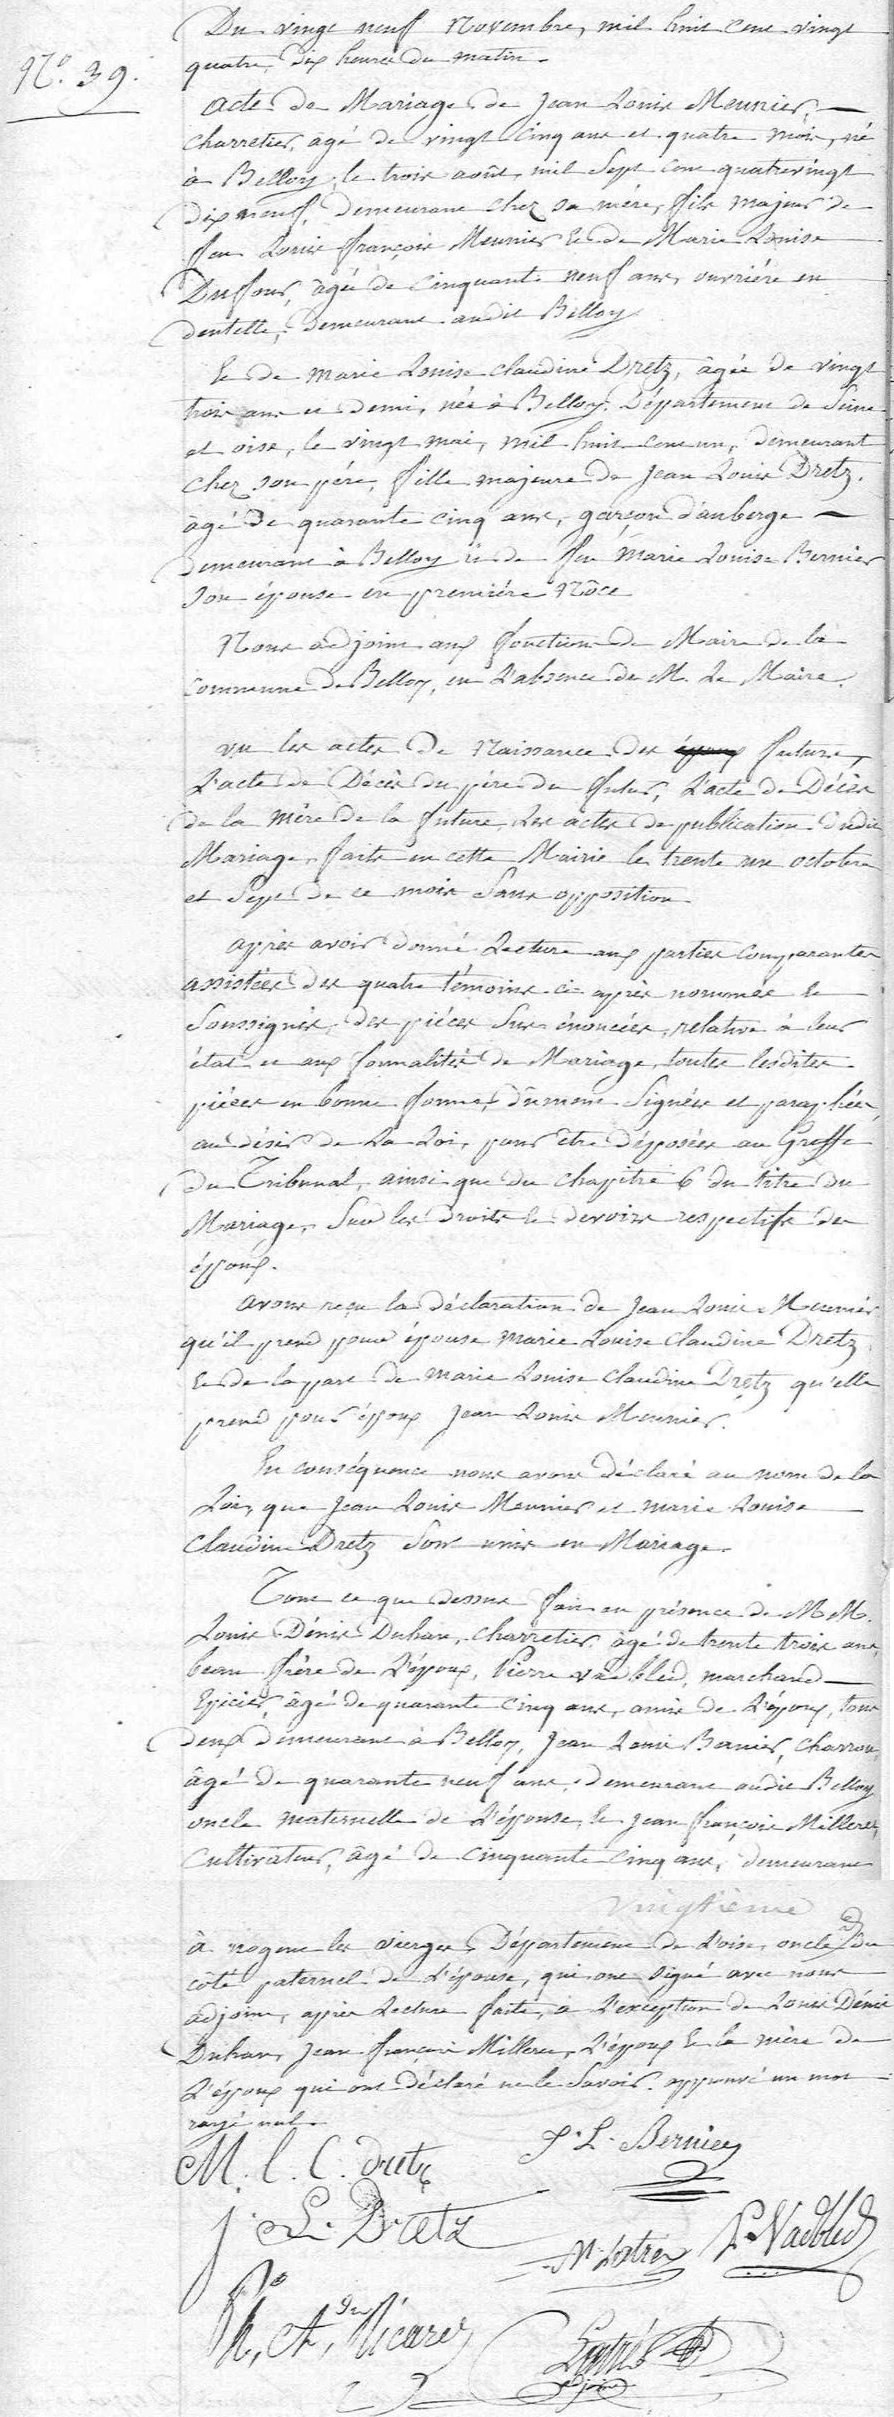 Du vingt neuf Novembre, mil huit cent vingt
quatre, dix heures du matin.
N.° 39.
acte de Mariage de Jean Louis Meunier,
charretier, âgé de vingt cinq ans et quatre mois, né
à Belloy, le trois août, mil Sept cent quatrevingt
dix neuf, demeurant chez sa mère, fils majeur de
feu Louis françois Meunier Et de Marie Louise
Duffour, âgée de cinquante neuf ans, ouvrière en
dentelle, demeurant audit Belloy
Et de marie Louise claudine Dretz, âgée de vingt
trois ans et demi, née à Belloy, Département de Seine
et oise, le vingt mai, mil huit cent un, demeurant
chez son père, fille majeure de Jean Louis Dretz,
âgé de quarante cinq ans, garçon d'auberge
demeurant à Belloy Et de feu Marie Louise Bernier
son épouse en première Nôce
Nous adjoint aux fonctions de Maire de la
commune de Belloy, en L'absence de M. Le Maire.
vu les actes de Naissance des époux futurs,
L'acte de Décès du père du futur, L'acte de Décès
de la mère de la future, Les actes de publication dudit
Mariage, faits en cette Mairie les trente un octobre
et Sept de ce mois Sans opposition
après avoir donné Lecture aux parties comparantes
assistées des quatre témoins ci-après nommés Et
Soussignés, des pièces Sus-énoncées, relative à leur
état et aux formalités de Mariage, toutes lesdites
pièces en bonne forme, dûment Signées et paraphées,
au désir de La Loi, pour être déposées au Greffe
du Tribunal, ainsi que du chapitre 6 du titre du
Mariage, Sur les droits Et devoirs respectifs des
époux.
avons reçu la déclaration de Jean Louis Meunier
qu'il prend pour épouse marie Louise claudine Dretz
Et de la part de marie Louise claudine Dretz qu'elle
prend pour époux Jean Louis Meunier.
En conséquence nous avons déclaré au nom de la
Loi, que Jean Louis Meunier et marie Louise
claudine Dretz Sont unis en Mariage.
Tout ce que dessus fait en présence de M.M.
Louis Dénis Duhan, charretier, âgé de trente trois ans,
beau frère de L'époux, Pierre vadbled, marchand
Epicier, âgé de quarante cinq ans, amis de L'époux, tous
deux demeurant à Belloy, Jean Louis Bernier, charron,
âgé de quarante neuf ans, demeurant audit Belloy
oncle maternelle de L'épouse, Et Jean françois Milleret,
Cultivateur, âgé de cinquante cinq ans, demeurant
vingtième
à nogent les vierges, Département de L'oise, oncle du
côté paternel de L'épouse, qui ont signé avec nous
adjoint, après Lecture faite, à L'exception de Louis Dénis
Duhan, Jean françois Milleret, L'époux Et la mère de
L'époux qui ont déclaré ne le Savoir. approuvé un mot
rayé nul.
M. l. C. dretz
J. L. Bernier
j. L. Dretz
P. Vadbled
adjoint